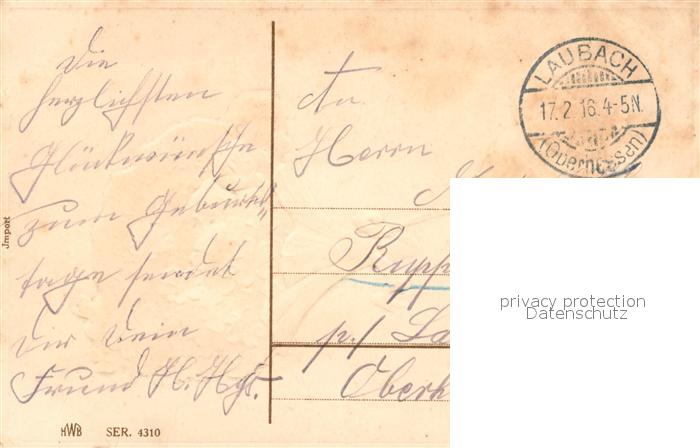 Die
herzlichsten
Glückwünsche
zum Geburts-
tage sendet
Dir Dein
Freund H.
An
Herrn
Rupp
p./ La
Oberh
LAUBACH
17.2.16.4-5N.
(Oberhessen)
privacy protection
Datenschutz
Jmport
HWB SER. 4310